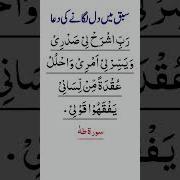 سبق میں دل لگانے کی دعا
رَبِّ اشْرَحْ لِیْ صَدْرِیْ
وَیَسِّرْ لِیْ اَمْرِیْ وَاحْلُلْ
عُقْدَةً مِّنْ لِّسَانِیْ
یَفْقَهُوْا قَوْلِیْ.
سورة طه